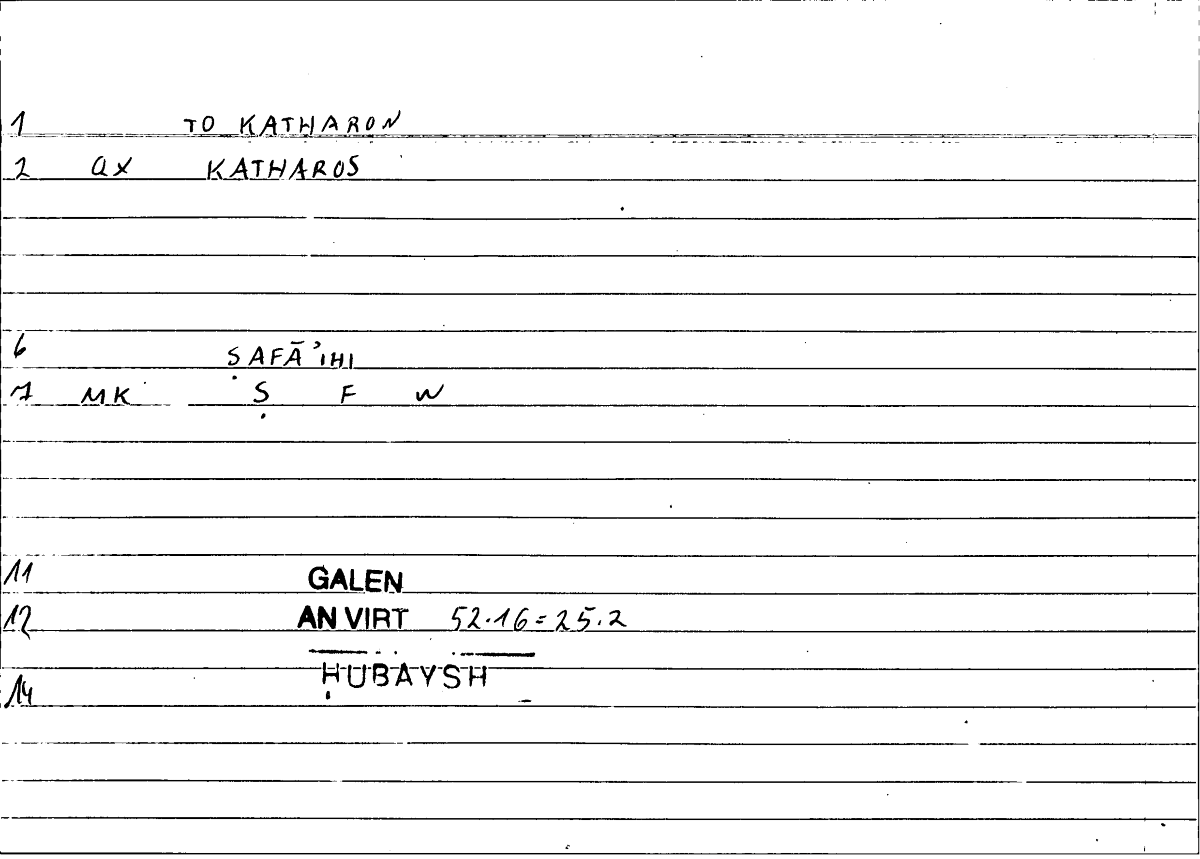 1 TO KATHARON
2 ax KATHAROS
6 ṢAFĀʾIHI
7 MK Ṣ F W
11 GALEN
12 AN VIRT 52.16=25.2
ḤUBAYSH
14